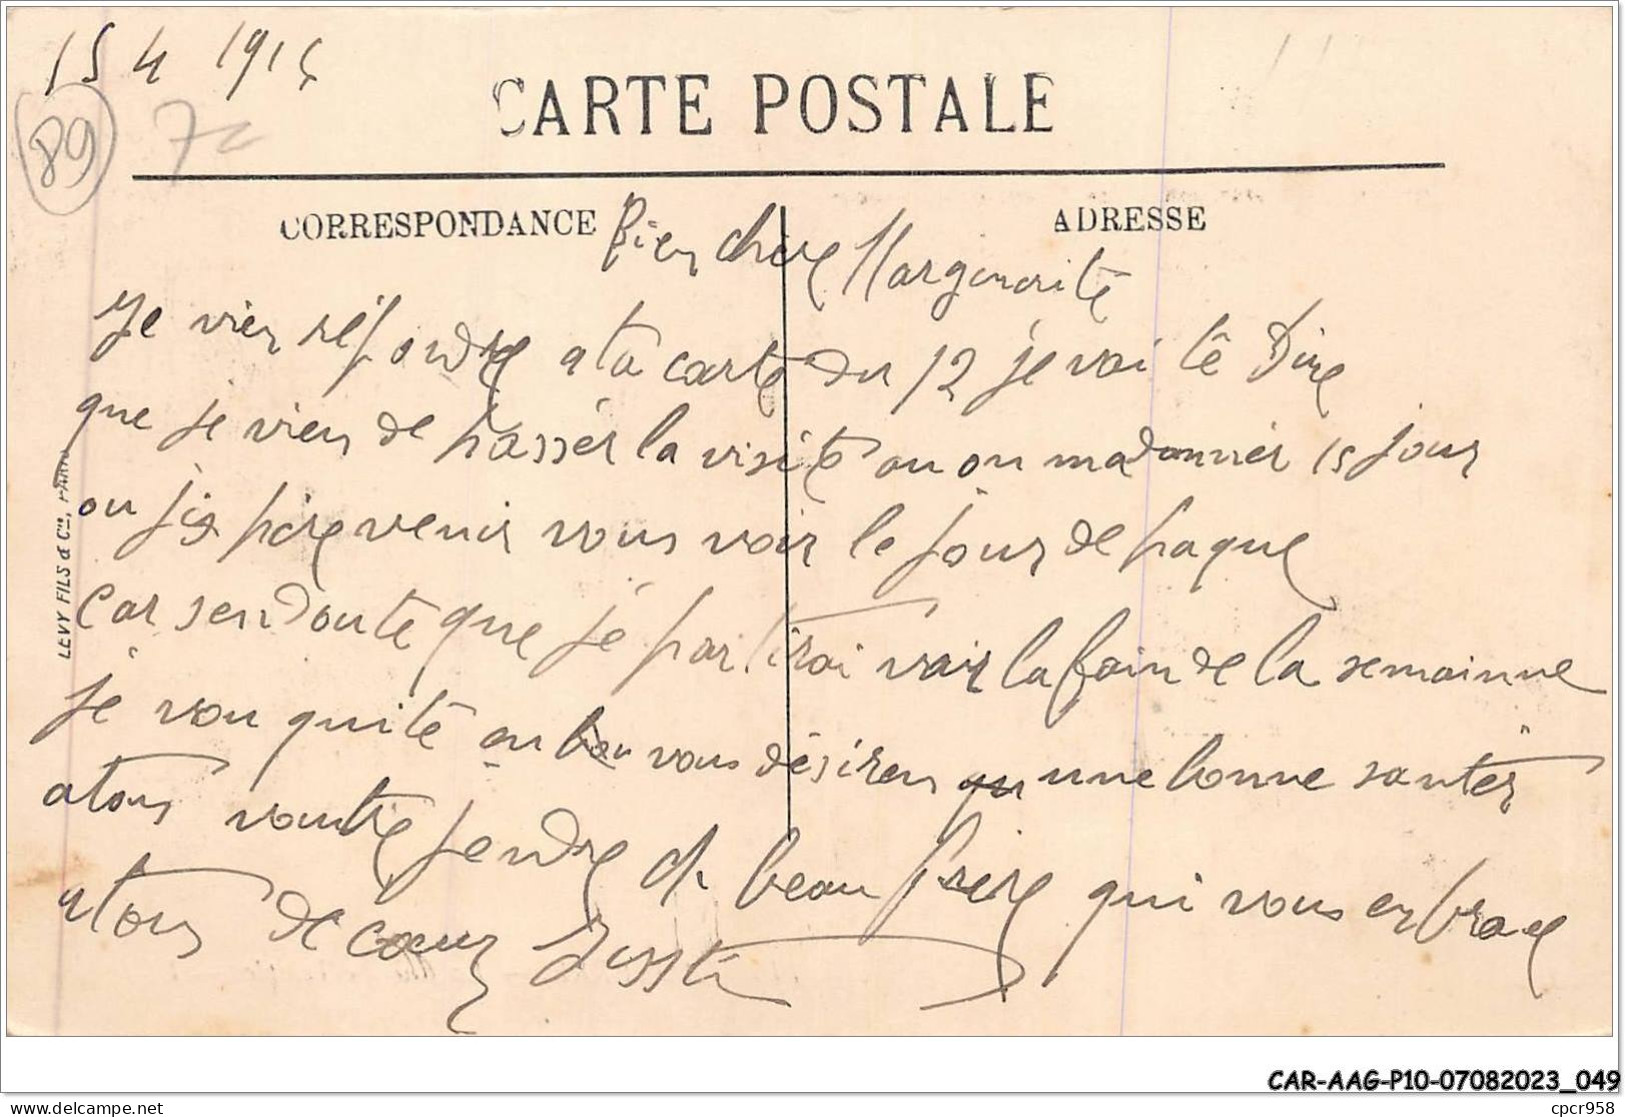 15 4 191
89
CARTE POSTALE
CORRESPONDANCE
ADRESSE
Bien chère Margurite
Je vien réfondre a ta carte du 12 je vai te Dire
que je vien de passér la visite ou on ma donnér 15 jour
ou jispère venir vous voir le jour de paque
Car sen Doute que je partirai vair la fain de la semainne
je vou quite en vous désiren une bonne santér
a tous voutre jendre de beau frère qui vous enbrace
a tous de cœur
LEVY FILS & Cie, PARIS
CAR-AAG-P10-07082023_049
delcampe.net
cpcr958